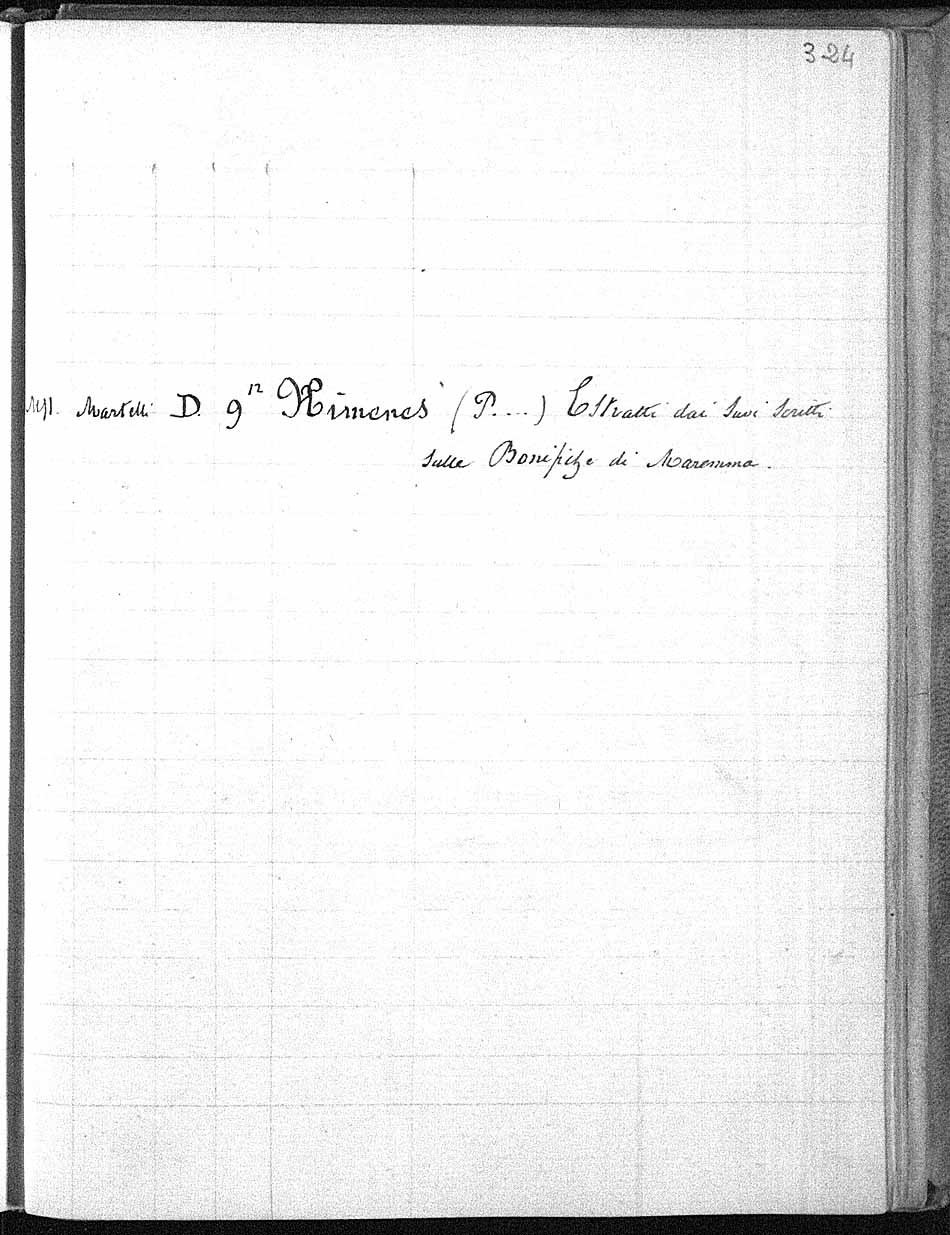 324
Mss. Martelli D. 9 12 Ximenes (P....) Estratti dai suoi scritti
sulle Bonifiche di Maremma.